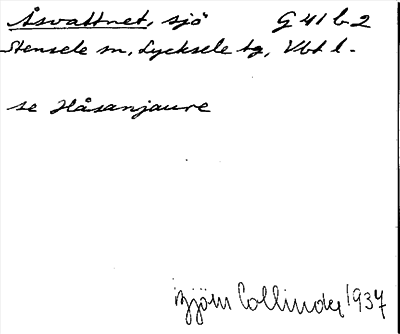 Åsvattnet, sjö G 41 b 2
Stensele sn, Lycksele tg, Vbt l.
se Håsanjaure
Björn Collinder 1937